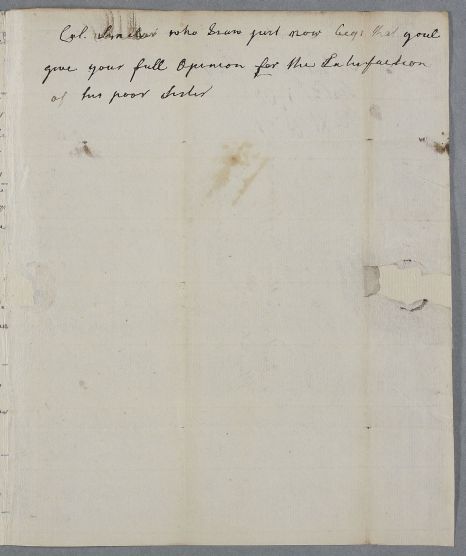 who I saw just now begs that youl
give your full Opinion for the Satisfaction
of his poor Sister